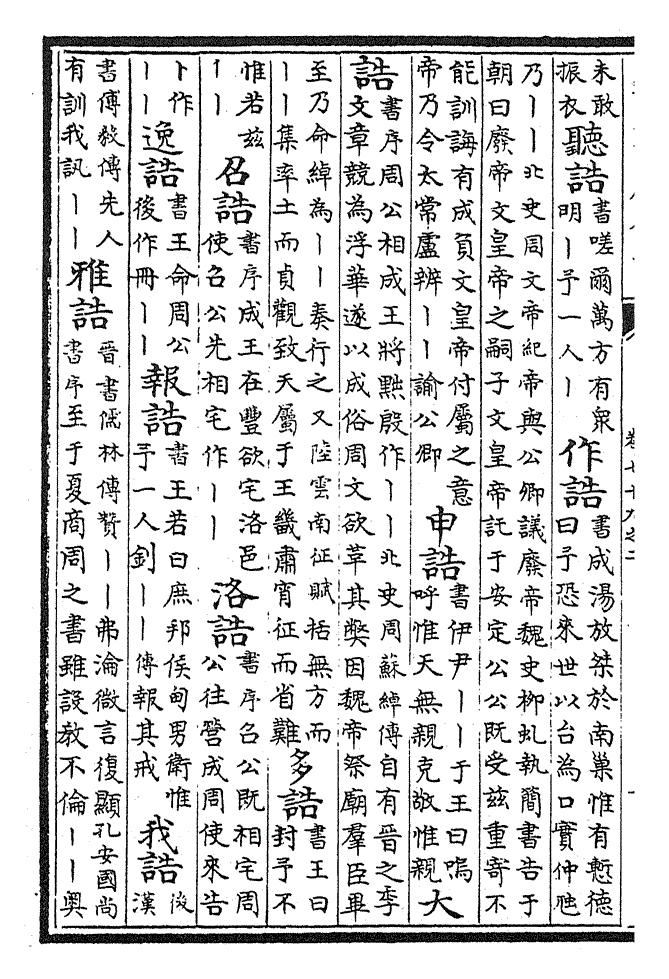 未敢振衣聽誥書嗟爾萬方有衆明丨予一人丨作誥書成湯放桀於南巢惟有慙德曰予恐來世以台為口實仲虺
乃丨丨北史周文帝紀帝與公卿議廢帝魏史柳虬執簡書告于朝曰廢帝文皇帝之嗣子文皇帝託于安定公公既受茲重寄不
能訓誨有成負文皇帝付屬之意帝乃令太常盧辨丨丨諭公卿申誥書伊尹丨丨于王曰嗚呼惟天無親克敬惟親大
誥書序周公相成王將黜殷作丨丨北史周蘇綽傳自有晉之季文章競為浮華遂以成俗周文欲革其獘因魏帝祭廟羣臣畢
至乃命綽為丨丨奏行之又陸雲南征賦括無方而丨丨集率土而貞觀致天屬于王畿肅宵征而省難多誥書王曰封予不
惟若茲丨丨召誥書序成王在豐欲宅洛邑使召公先相宅作丨丨洛誥書序召公既相宅周公往營成周使來告
卜作丨丨逸誥書王命周公後作冊丨丨報誥書王若曰庶邦侯甸男衛惟予一人釗丨丨傳報其戒我誥後漢
書傅毅傳先人有訓我訊丨丨雅誥晉書儒林傳贊丨丨弗淪微言復顯孔安國尚書序至于夏商周之書雖設教不倫丨丨奧